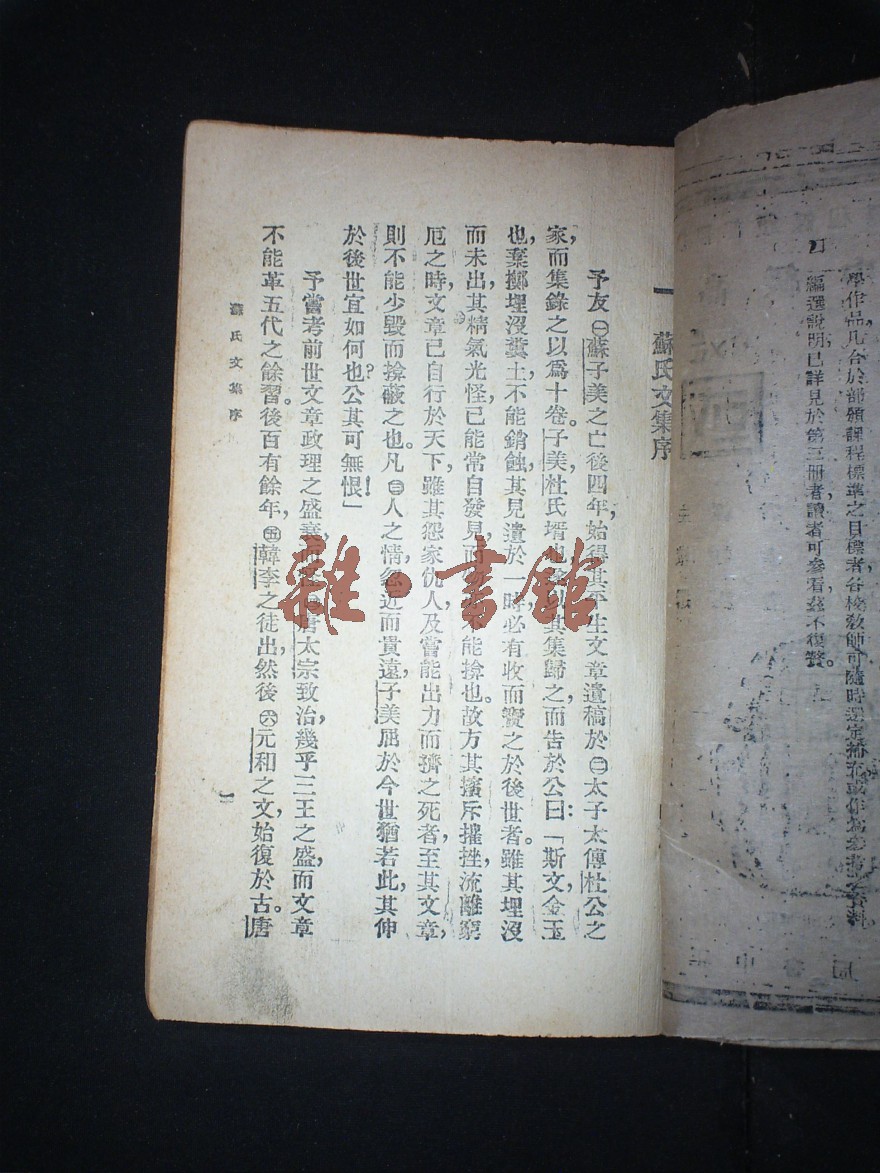 學作品，凡合於部頒課程標準之目標者，各校教師可隨時選定補充，或作爲參考之資料。
四　編選說明已詳見於第三冊者，讀者可參看，茲不復贅。
一　蘇氏文集序
予友㊀蘇子美之亡後四年，始得其平生文章遺稿於㊁太子太傅杜公之
家，而集錄之以爲十卷。子美，杜氏壻也，其集歸之，而告於公曰：「斯文，金玉
也，棄擲埋沒糞土，不能銷蝕，其見遺於一時，必有收而寶之於後世者。雖其埋沒
而未出，其精氣光怪，已能常自發見，而不能揜也。故方其擯斥摧挫，流離窮
厄之時，文章已自行於天下，雖其怨家仇人，及嘗能出力而擠之死者，至其文章，
則不能少毀而揜蔽之也。凡㊂人之情，忽近而貴遠，子美屈於今世猶若此，其伸
於後世宜如何也？公其可無恨！」
予嘗考前世文章政理之盛衰，而唐太宗致治，幾乎三王之盛，而文章
不能革五代之餘習。後百有餘年，㊄韓李之徒出，然後㊅元和之文始復於古。唐
蘇氏文集序
一
雜·書館